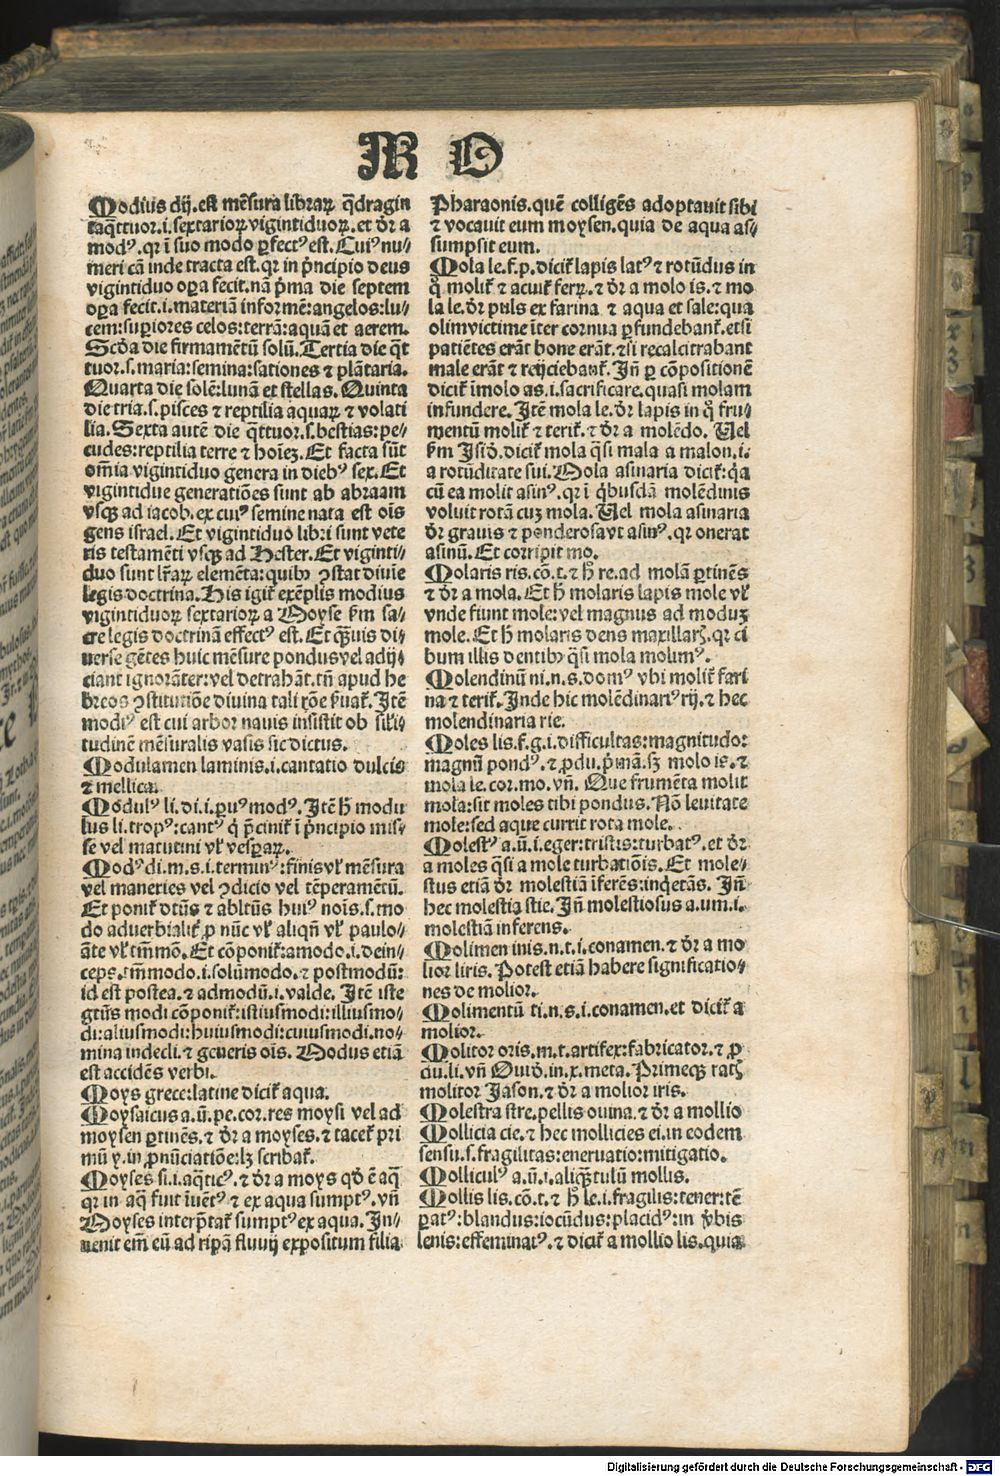 M O
Modius dij. est mēsura librarꝝ q̄dragin
taq̄ttuor.i.sextariorꝝ vigintiduorꝝ. et dr̄ a
modꝰ. qr ī suo modo ꝑfectꝰ est. Cuiꝰ nu⸗
meri cā inde tracta est. qr in pͥncipio deus
vigintiduo oꝑa fecit. nā pͥma die septem
oꝑa fecit.i.materiā informē: angelos: lu⸗
cem: suꝑiores celos: terrā: aquā et aerem.
Scd̄a die firmamētū solū. Tertia die q̄t
tuor.s.maria: semina: sationes ⁊ plātaria.
Quarta die solē: lunā et stellas. Quinta
die tria.s.pisces ⁊ reptilia aquaꝝ ⁊ volati
lia. Sexta autē die q̄ttuor.s.bestias: pe⸗
cudes: reptilia terre ⁊ hoieꝫ. Et facta sūt
om̄ia vigintiduo genera in diebꝰ sex. Et
vigintidue generatiōes sunt ab abraam
vsqꝫ ad iacob. ex cuiꝰ semine nata est oīs
gens israel. Et vigintiduo libri sunt vete
ris testamēti vsqꝫ ad Hester. Et viginti⸗
duo sunt lr̄aꝝ elemēta: quibꝫ ꝯstat diuīe
legis doctrina. His igit̉ exēplis modius
vigintiduorꝝ sextariorꝝ a Moyse ẜm sa⸗
cre legis doctrinā effectꝰ est. Et qꝫuis di⸗
uerse gētes huic mēsure pondus vel adij⸗
ciant ignorāter: vel detrahāt. tn̄ apud he
breos ꝯstitutiōe diuina tali rōe ẜuat̉. Itē
modiꝰ est cui arbor nauis insistit ob sil̄i⸗
tudinē mēsuralis vasis sic dictus.
Modulamen laminis.i.cantatio dulcis
⁊ mellica.
Modulꝰ li.di.i.ꝑuꝰ modꝰ. Itē h̄ modu
lus li.tropꝰ: cantꝰ q̇ pͥcinit̉ ī pͥncipio mis⸗
se vel matutini vl̉ vesꝑaꝝ.
Modꝰ di.m.s.i.terminꝰ: finis vl̉ mēsura
vel maneries vel ꝯdicio vel tēperamētū.
Et ponit̉ dtūs ⁊ abltūs huiꝰ noīs.s.mo
do aduerbialit̉ ꝓ nūc vl̉ aliqn̄ vl̉ paulo⸗
āte vl̉ tm̄mō. Et cōponit̉: amodo.i.dein⸗
ceps. tm̄modo.i.solūmodo. ⁊ postmodū:
id est postea. ⁊ admodū.i.valde. Itē iste
gtūs modi cōponit̉: istiusmodi: illiusmo⸗
di: aliusmodi: huiusmodi: cuiusmodi. no⸗
mina indecli. ⁊ generis oīs. Modus etiā
est accidēs verbi.
Moys grece: latine dicit̉ aqua.
Moysaicus a.ū.pe.cor.res moysi vel ad
moysen ꝑtinēs. ⁊ dr̄ a moyses. ⁊ tacet̉ pri
mū y. in ꝓnūciatiōe: lꝫ scribat̉.
Moyses si.i.aq̄ticꝰ. ⁊ dr̄ a moys qd̄ ē aq̄
qr in aq̄ fuit īuētꝰ ⁊ ex aqua sumptꝰ. vn̄
Moyses interp̄tat̉ sumptꝰ ex aqua. In⸗
uenit em̄ eū ad ripā fluuij expositum filia
Pharaonis. quē colligēs adoptauit sibi
⁊ vocauit eum moysen. quia de aqua as⸗
sumpsit eum.
Mola le.f.p.dicit̉ lapis latꝰ ⁊ rotūdus in
q̊ molit̉ ⁊ acuit̉ ferꝝ. ⁊ dr̄ a molo is. ⁊ mo
la le. dr̄ puls ex farina ⁊ aqua et sale: qua
olim victime īter cornua ꝑfundebant̉. et si
patiētes erāt bone erāt. ⁊ si recalcitrabant
male erāt ⁊ reijciebant̉. In̄ ꝑ cōpositionē
dicit̉ īmolo as.i.sacrificare. quasi molam
infundere. Itē mola le. dr̄ lapis in q̊ fru⸗
mentū molit̉ ⁊ terit̉. ⁊ dr̄ a molēdo. Vel
ẜm Isid̄. dicit̉ mola q̄si mala a malon.i.
a rotūditate sui. Mola asinaria dicit̉: q̄a
cū ea molit asinꝰ. qr ī q̇busdā molēdinis
voluit rotā cuꝫ mola. Vel mola asinaria
dr̄ grauis ⁊ ponderosa vt asinꝰ. qr onerat
asinū. Et corripit mo.
Molaris ris.cō.t. ⁊ h̄ re. ad molā ꝑtinēs
⁊ dr̄ a mola. Et h̄ molaris lapis mole vl̉
vnde fiunt mole: vel magnus ad moduꝫ
mole. Et h̄ molaris dens maxillarꝭ. qr ci
bum illis dentibꝫ q̄si mola molimꝰ.
Molendinū ni.n.s.domꝰ vbi molit̉ fari
na ⁊ terit̉. Inde hic molēdinariꝰ rij. ⁊ hec
molendinaria rie.
Moles lis.f.g.i.difficultas: magnitudo:
magnū pondꝰ. ⁊ ꝓdu. pͥmā. sꝫ molo is. ⁊
mola le.cor.mo. vn̄. Que frumēta molit
mola: sit moles tibi pondus. Nō leuitate
mole: sed aque currit rota mole.
Molestꝰ a.ū.i.eger: tristis: turbatꝰ. et dr̄
a moles q̄si a mole turbatiōis. Et mole⸗
stus etiā dr̄ molestiā īferēs: inq̇etās. In̄
hec molestia stie. In̄ molestiosus a.um.i.
molestiā inferens.
Molimen inis.n.t.i.conamen. ⁊ dr̄ a mo
lior liris. Potest etiā habere significatio⸗
nes de molior.
Molimentū ti.n.s.i.conamen. et dicit̉ a
molior.
Molitor oris.m.t.artifex: fabricator. ⁊ ꝓ
du.li. vn̄ Ouid̄.in.x.meta. Primeqꝫ ratꝭ
molitor Jason. ⁊ dr̄ a molior iris.
Molestra stre. pellis ouina. ⁊ dr̄ a mollio
Mollicia cie. ⁊ hec mollicies ei. in eodem
sensu.s.fragilitas: eneruatio: mitigatio.
Molliculꝰ a.ū.i.aliqꝫtulū mollis.
Mollis lis.cō.t. ⁊ h̄ le.i.fragilis: tener: tē
ꝑatꝰ: blandus: iocūdus: placidꝰ: in v̄bis
lenis: effeminatꝰ. ⁊ dicit̉ a mollio lis. quia
Digitalisierung gefördert durch die Deutsche Forschungsgemeinschaft - DFG